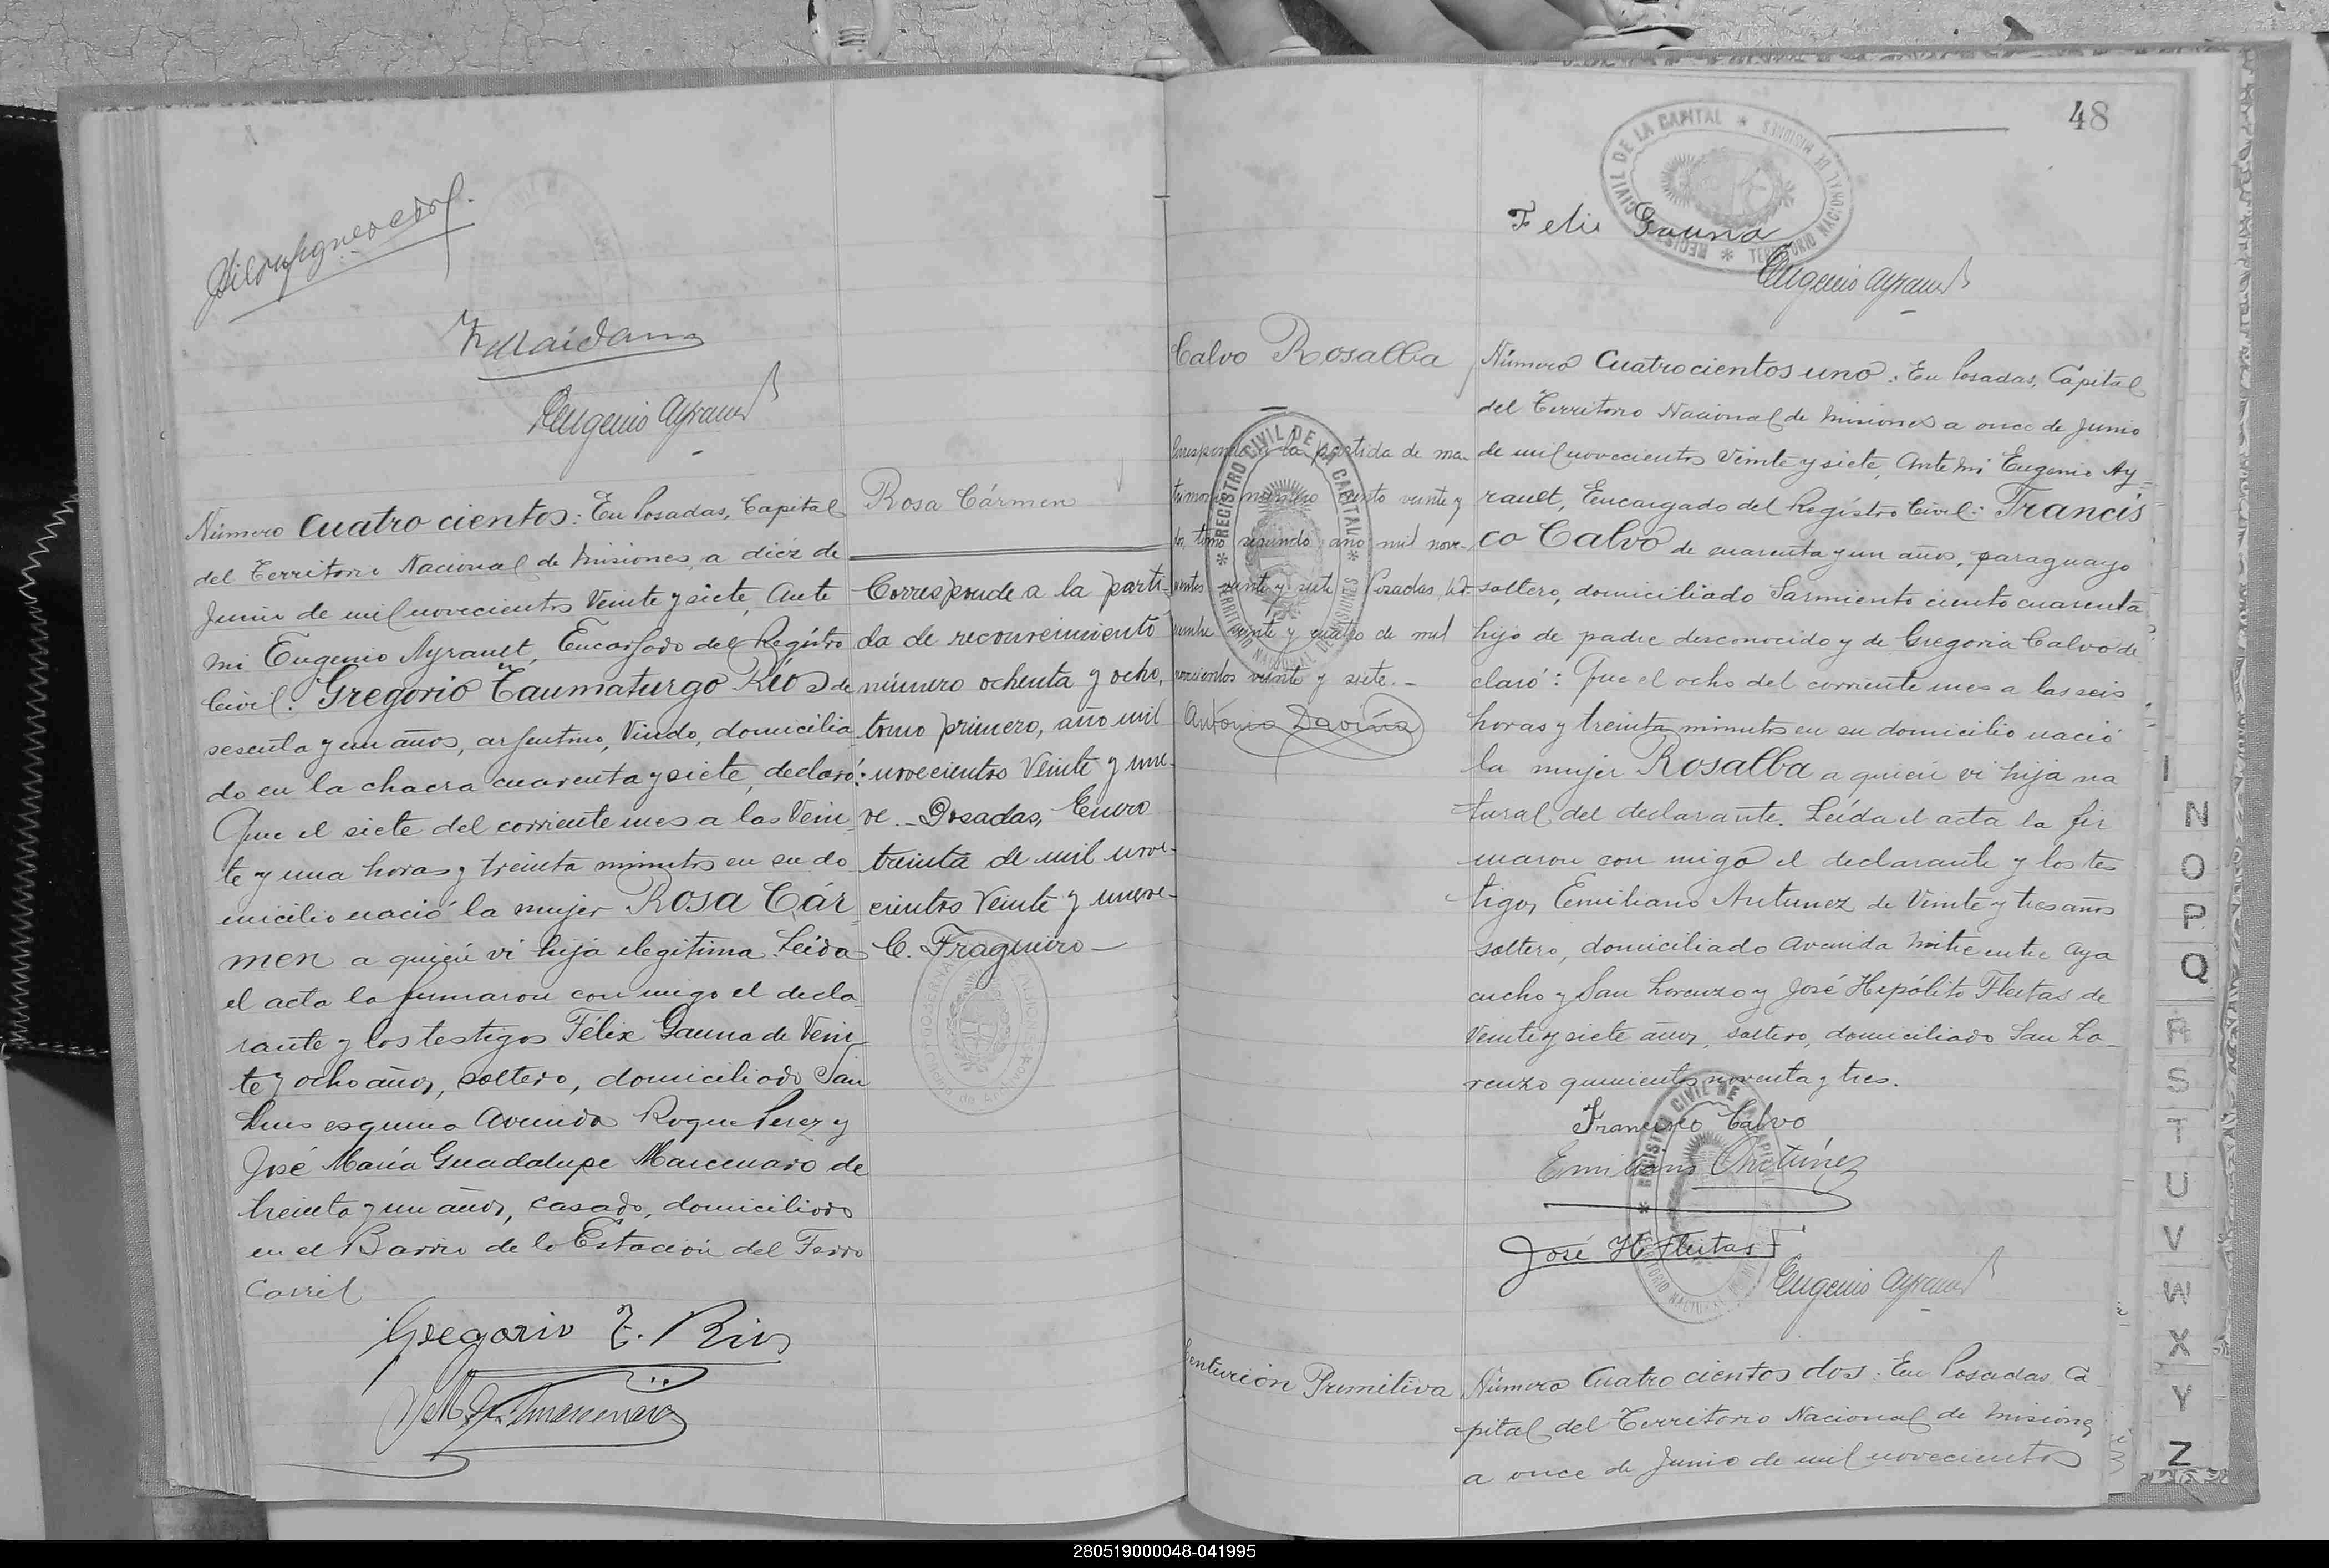 Eugenio Ayrault
Número Cuatro cientos: En Posadas, Capital
del Territorio Nacional de Misiones, a diez de
Junio de mil novecientos Veinte y siete, Ante
mi Eugenio Ayrault, Encargado del Registro
Civil: Gregorio Taumaturgo Ríos de
sesenta y un años, argentino, Viudo, domicilia
do en la chacra cuarenta y siete, declaró:
Que el siete del corriente mes a las Vein
te y una horas y treinta minutos en su do
micilio nació la mujer Rosa Cár
men a quién vi hija ilegítima. Leída
el acta la firmaron con migo el decla
rante y los testigos Félix Gauna de Vein
te y ocho años, soltero, domiciliado San
Luis esquina Avenida Roque Perez y
José María Guadalupe Marcenaro de
treinta y un años, casado, domiciliado
en el Barrio de la Estación del Ferro
Carril
Gregorio T. Rios
Rosa Cármen
Corresponde a la parti-
da de reconocimiento
número ochenta y ocho,
tomo primero, año mil
novecientos Veinte y nue-
ve. - Posadas, Enero
treinta de mil nove-
cientos Veinte y nueve-
C. Fragueiro -
48
REGISTRO CIVIL DE LA CAPITAL * TERRITORIO NACIONAL DE MISIONES *
Felis Gauna
Eugenio Ayrault
Calvo Rosalba
Corresponde a la partida de ma-
trimonio número ciento veinte y
dos, tomo segundo, año mil nove-
cientos veinte y siete. Posadas,
veinte y cuatro de mil
novecientos veinte y siete. -
Antonio Daviña
REGISTRO CIVIL DE LA CAPITAL * TERRITORIO NACIONAL DE MISIONES *
Número Cuatrocientos uno: En Posadas, Capital
del Territorio Nacional de Misiones a once de Junio
de mil novecientos Veinte y siete, Ante mi Eugenio Ay
rault, Encargado del Registro Civil: Francis
co Calvo de cuarenta y un años, paraguayo
soltero, domiciliado Sarmiento ciento cuarenta
hijo de padre desconocido y de Gregoria Calvo de
claró: Que el ocho del corriente mes a las seis
horas y treinta minutos en su domicilio nació
la mujer Rosalba a quién vi hija na
tural del declarante. Leída el acta la fir
maron con migo el declarante y los tes
tigos Emiliano Antunez de Veinte y tres años
soltero, domiciliado Avenida Mitre entre Aya
cucho y San Lorenzo y José Hipólito Fleitas de
Veinte y siete años, soltero, domiciliado San Lo-
renzo quinientos noventa y tres.
Francisco Calvo
Emiliano Antúnez
José H. Fleitas F
Eugenio Ayrault
REGISTRO CIVIL DE LA CAPITAL * TERRITORIO NACIONAL DE MISIONES *
Centurión Primitiva
Número Cuatro cientos dos: En Posadas, Ca
pital del Territorio Nacional de Misiones
a once de Junio de mil novecientos
I
N
O
P
Q
R
S
T
U
V
W
X
Y
Z
280519000048-041995